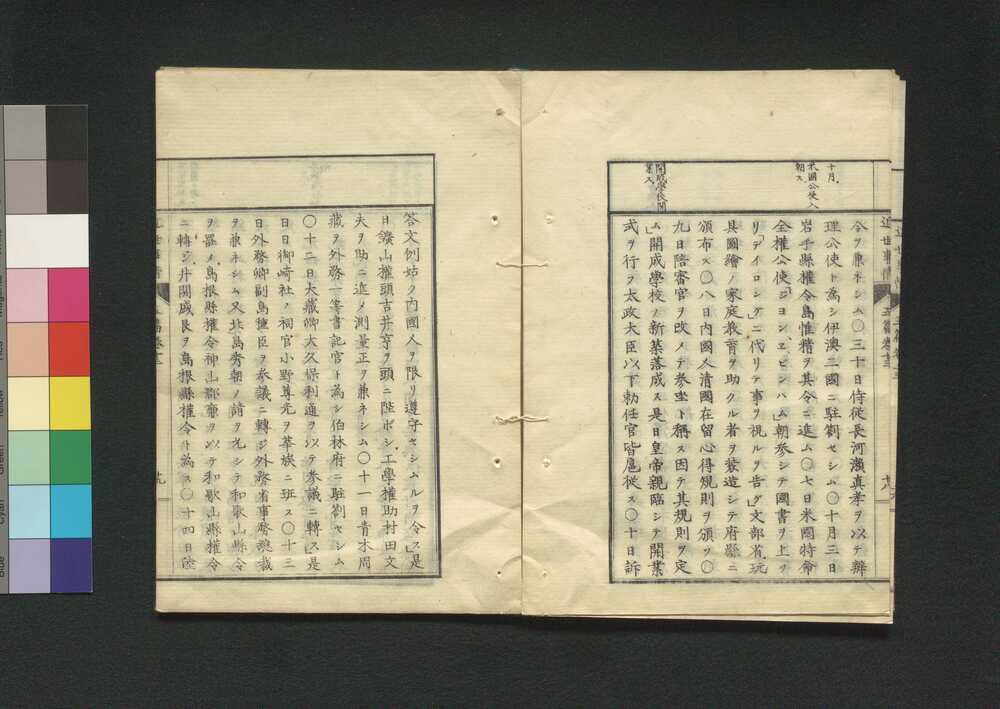 十月、
米國公使入
朝ス
開成學校開
業ス
令ヲ兼ネシム〇三十日侍從長河瀨真孝ヲ以テ辨
理公使ト為シ伊澳二國ニ駐劄セシム〇十月三日
岩手縣權令島惟精ヲ其令ニ進ム〇七日米國特命
全權公使「ジヨン、エ、ビンハム」朝參シテ國書ヲ上ツ
リ「デイロング」ニ代リテ事ヲ視ルヲ告グ文部省、玩
具圖繪ノ家庭教育ヲ助クル者ヲ製造シテ府縣ニ
頒布ス〇八日内國人清國在留心得規則ヲ頒ツ〇
九日陪審官ヲ改メテ參坐ト稱ス因テ其規則ヲ定
ム開成學校ノ新築落成ス是日皇帝親臨シテ開業
式ヲ行ヲ太政大臣以下勅任官皆扈從ス〇十日訴
答文例姑ク内國人ヲ限リ遵守セシムルヲ令ス是
日鑛山權頭吉井亨ヲ頭ニ陞ボシ、工學權助村田文
夫ヲ助ニ進メ測量正ヲ兼ネシム〇十一日青木周
藏ヲ外務一等書記官ト為シ伯林府ニ駐劄セシム
〇十二日大藏卿大久保利通ヲ以テ參議ニ轉ス是
日日御崎社ノ祠官小野尊光ヲ華族ニ班ス〇十三
日外務卿副島種臣ヲ參議ニ轉ジ外務省事務總裁
ヲ兼ネシム又北島秀朝ノ請ヲ允シテ和歌山縣令
ヲ罷メ島根縣權令神山郡廉ヲ以テ和歌山縣權令
ニ轉ジ井關盛艮ヲ島根縣權令ト為ス〇十四日陸
十九